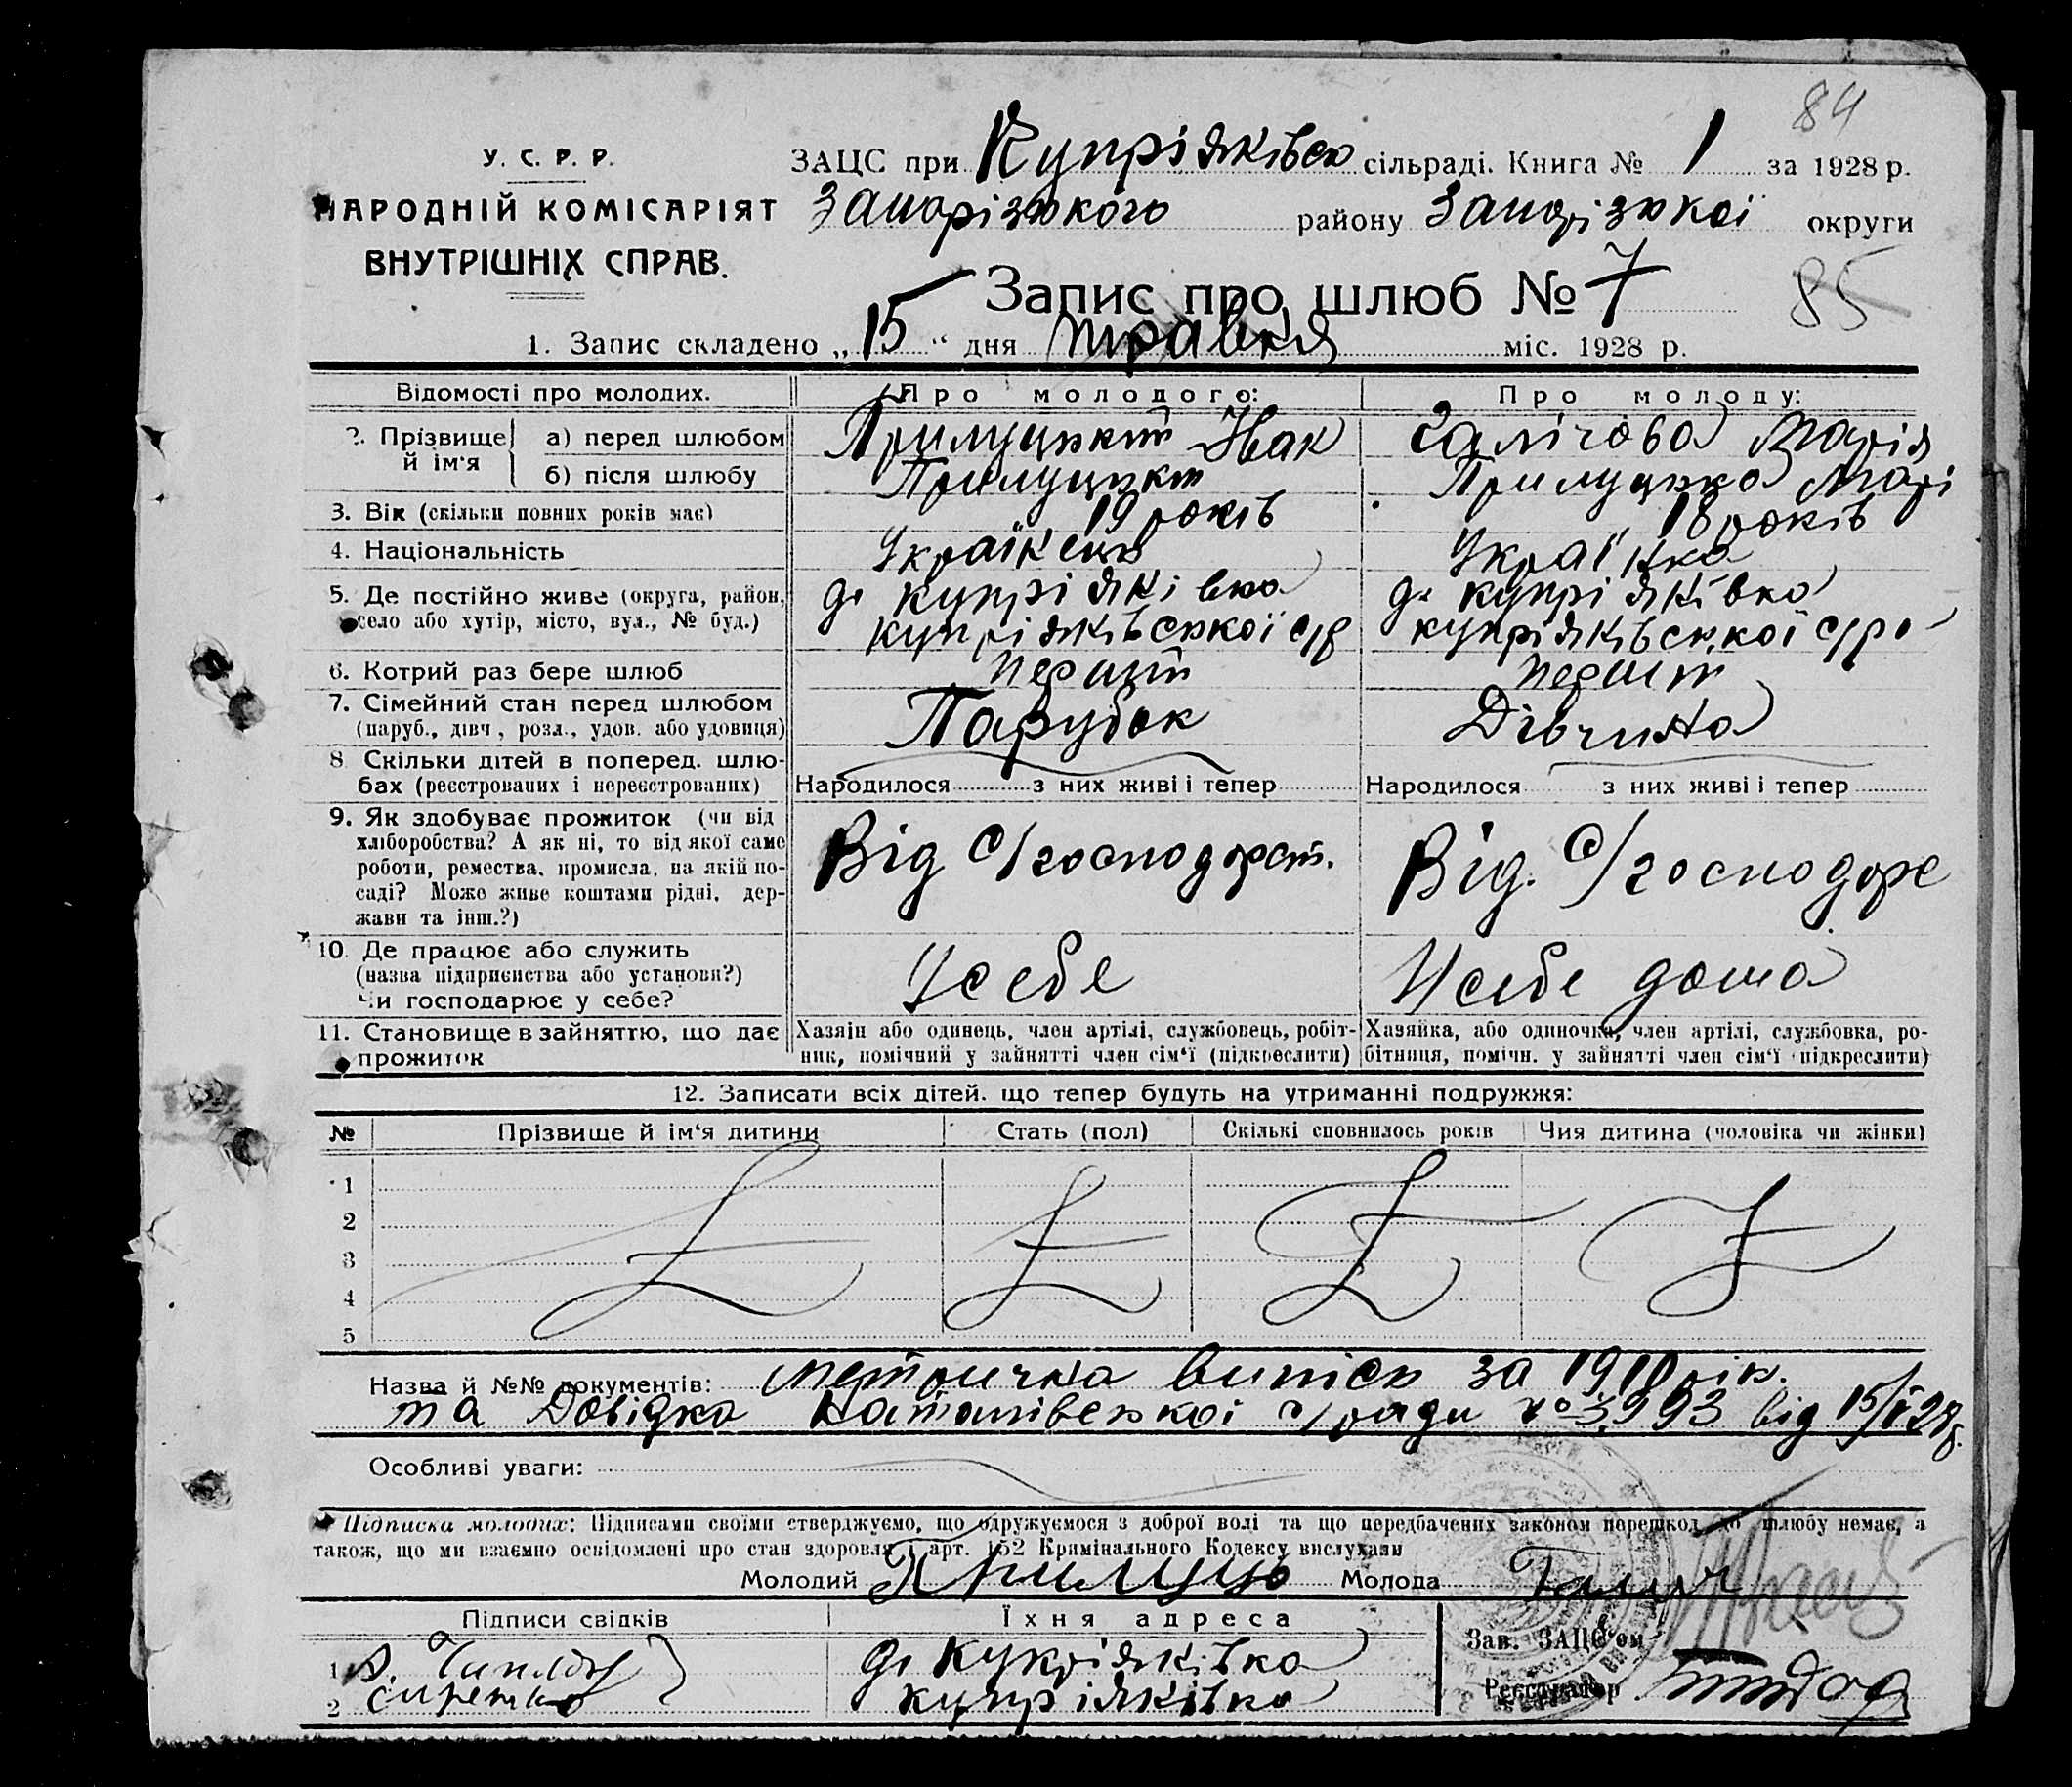 84
У. С. Р. Р.
НАРОДНІЙ КОМІСАРІЯТ
ВНУТРІШНІХ СПРАВ.
ЗАЦС при Купріяківсь сільраді. Книга № 1 за 1928 р.
Запорізького району Запорізької округи
Запис про шлюб № 7
85
1. Запис складено „15“ дня травня міс. 1928 р.
Відомості про молодих. Про молодого: Про молоду:
2. Прізвище й ім'я а) перед шлюбом Прилуцький Іван Галічова Марія
б) після шлюбу Прилуцький Прилуцька Марі
3. Вік (скільки повних років має) 19 років 18 років
4. Національність Українець Українка
5. Де постійно живе (округа, район, д. Купріяківка д. Купріяківка
село або хутір, місто, вул., № буд.) Купріяківської с/р Купріяківської с/р
6. Котрий раз бере шлюб перший перший
7. Сімейний стан перед шлюбом Парубок Дівчина
(паруб., дівч., розл., удов. або удовиця)
8. Скільки дітей в поперед. шлю-
бах (реєстрованих і нереєстрованих) Народилося з них живі і тепер Народилося з них живі і тепер
9. Як здобуває прожиток (чи від
хліборобства? А як ні, то від якої саме
роботи, ремества, промисла, на якій по-
саді? Може живе коштами рідні, дер-
жави та інш.?)
Від с/господарст. Від. с/господарс
10. Де працює або служить
(назва підприєнства або установи?)
Чи господарює у себе?
У себе У себе дома
11. Становище в зайняттю, що дає Хазяін або одинець, член артілі, службовець, робіт- Хазяйка, або одиночка, член артілі, службовка, ро-
прожиток ник, помічний у зайнятті член сім'ї (підкреслити) бітниця, помічн. у зайнятті член сім'ї (підкреслити)
12. Записати всіх дітей. що тепер будуть на утриманні подружжя:
№ Прізвище й ім'я дитини Стать (пол) Скількі сповнилось років Чия дитина (чоловіка чи жінки)
1
2
3
4
5
Назва й №№ документів: метрична випіск за 1910 рік.
та Довідка Наталівської с/ради № 3993 від 15/V 28р.
Особливі уваги:
Підписка молодих: Підписами своїми стверджуємо, що одружуємося з доброї волі та що передбачених законом перешкод до шлюбу немає, а
також, що ми взаємно освідомлені про стан здоровля і арт. 152 Кримінального Кодексу вислухали
Молодий Прилуць Молода Галич
Підписи свідків Їхня адреса
Зав. ЗАЦС'ом
1 д. Купріяківка
2 Купріяківка
Реєстратор